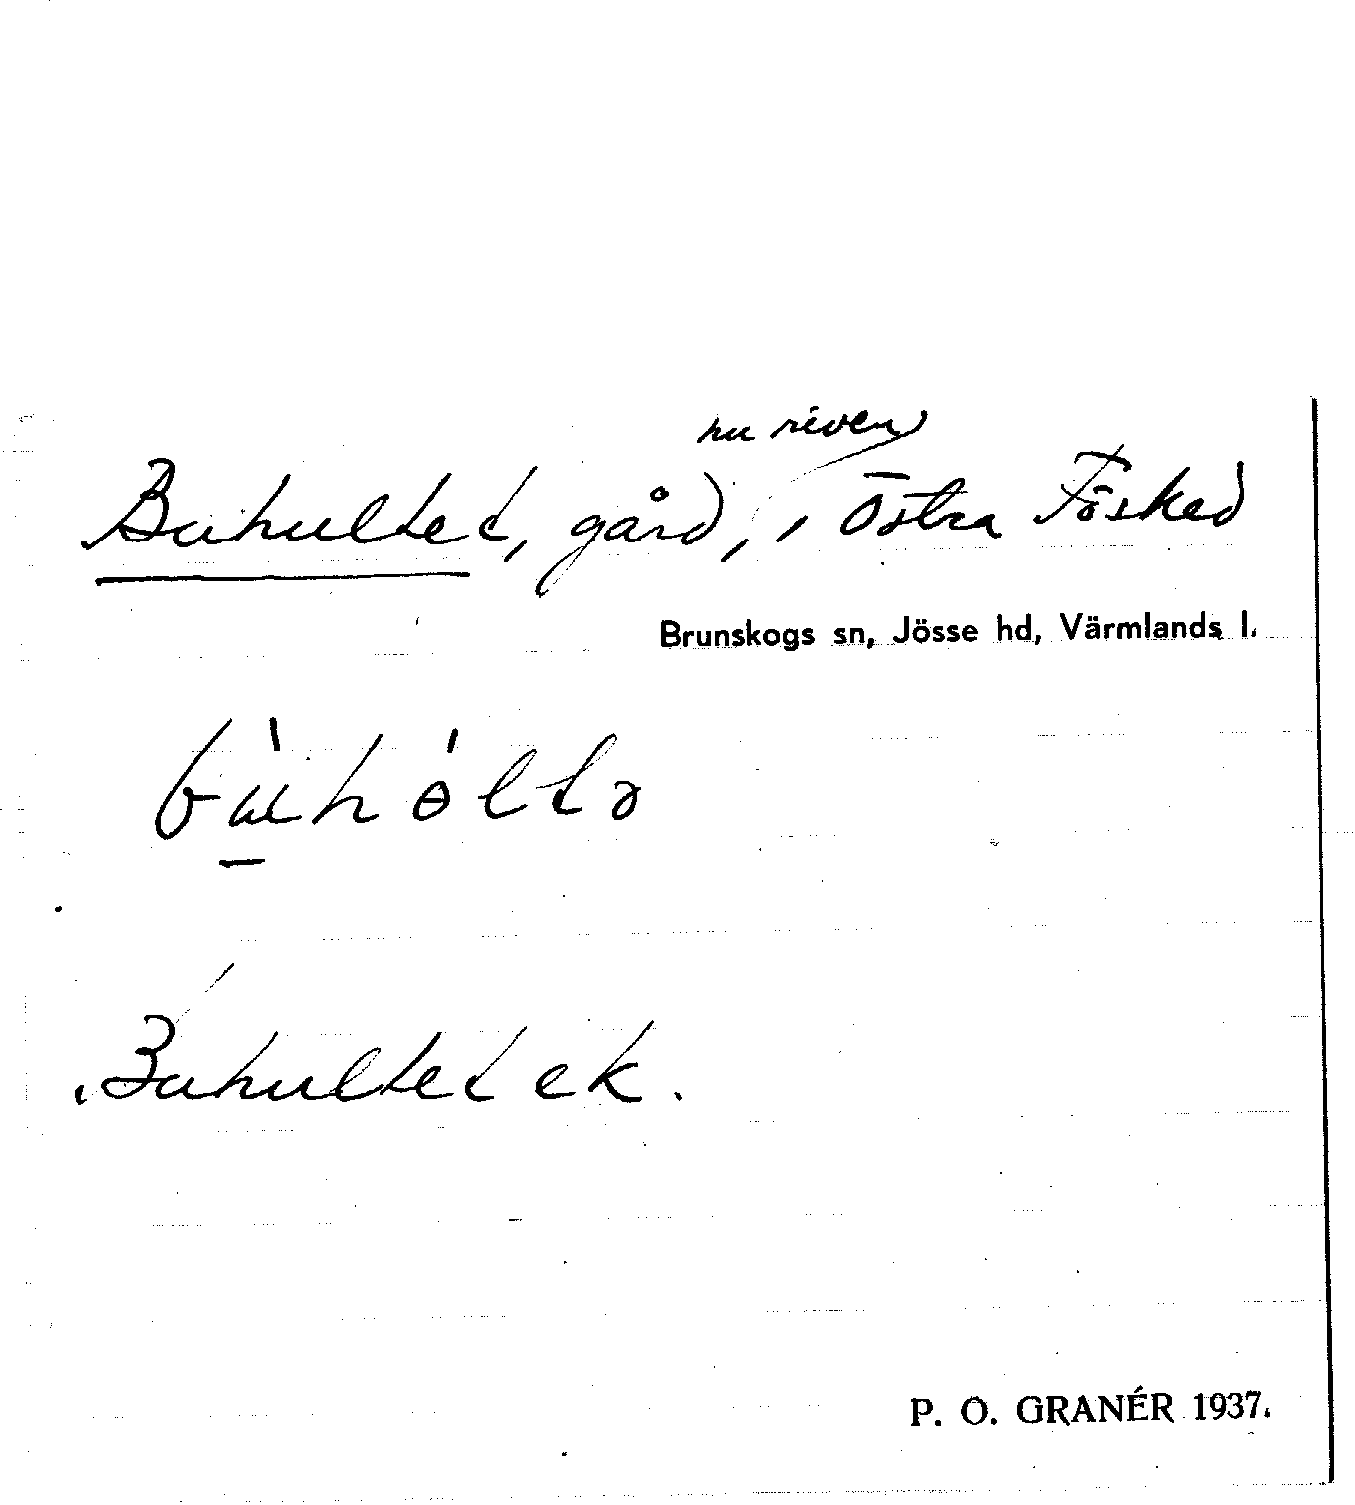 nu riven
Buhultet, gård, i Östra Fösked
Brunskogs sn, Jösse hd, Värmlands l.
bu̱̍hɵ̍ltə
Buhultet ek.
P. O. GRANÉR 1937.